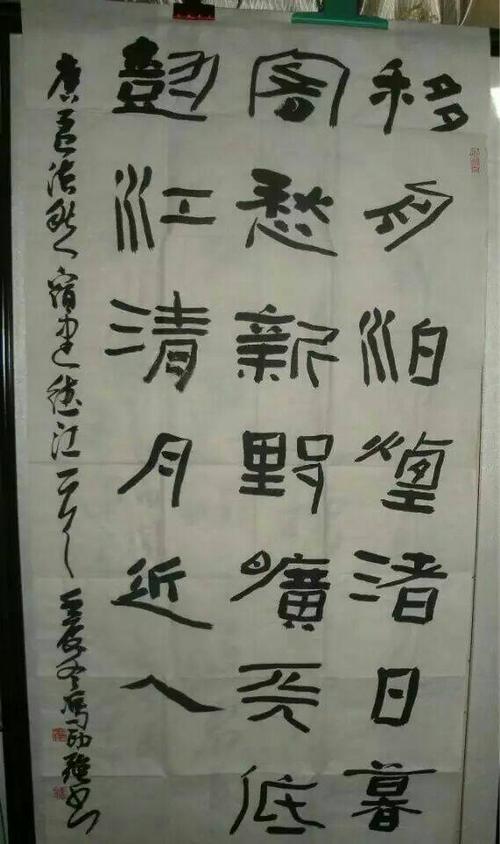 移舟泊煙渚日暮
客愁新野曠天低
樹江清月近人
唐孟浩然宿建德江一首壬辰冬